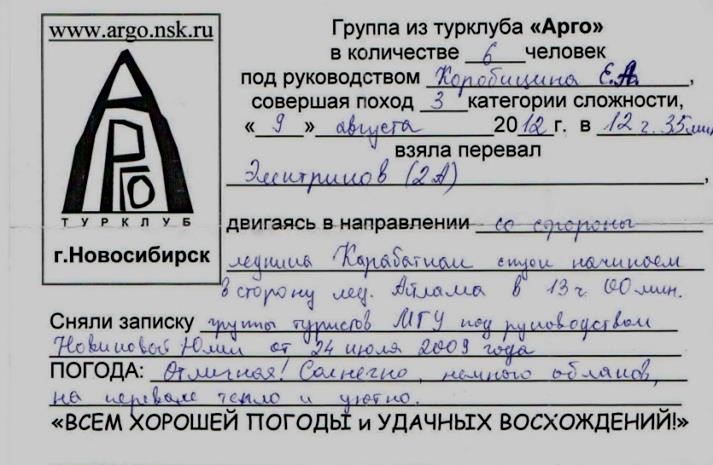 www.argo.nsk.ru
АРГО
ТУРКЛУБ
г.Новосибирск
Группа из турклуба «Арго»
в количестве 6 человек
под руководством Коробицина Е.А.,
совершая поход 3 категории сложности,
« 9 » августа 2012 г. в 12 г. 35 мин
взяла перевал
(2А),
двигаясь в направлении со стороны
ледника Карабаткак спуск начинаем
в сторону лед. Айлама в 13 г. 00 мин.
Сняли записку группы туристов МГУ под руководством
Новиковой Юлии от 24 июля 2009 года
ПОГОДА: Отличная! Солнечно, немного облаков,
на перевале тепло и уютно.
«ВСЕМ ХОРОШЕЙ ПОГОДЫ и УДАЧНЫХ ВОСХОЖДЕНИЙ!»